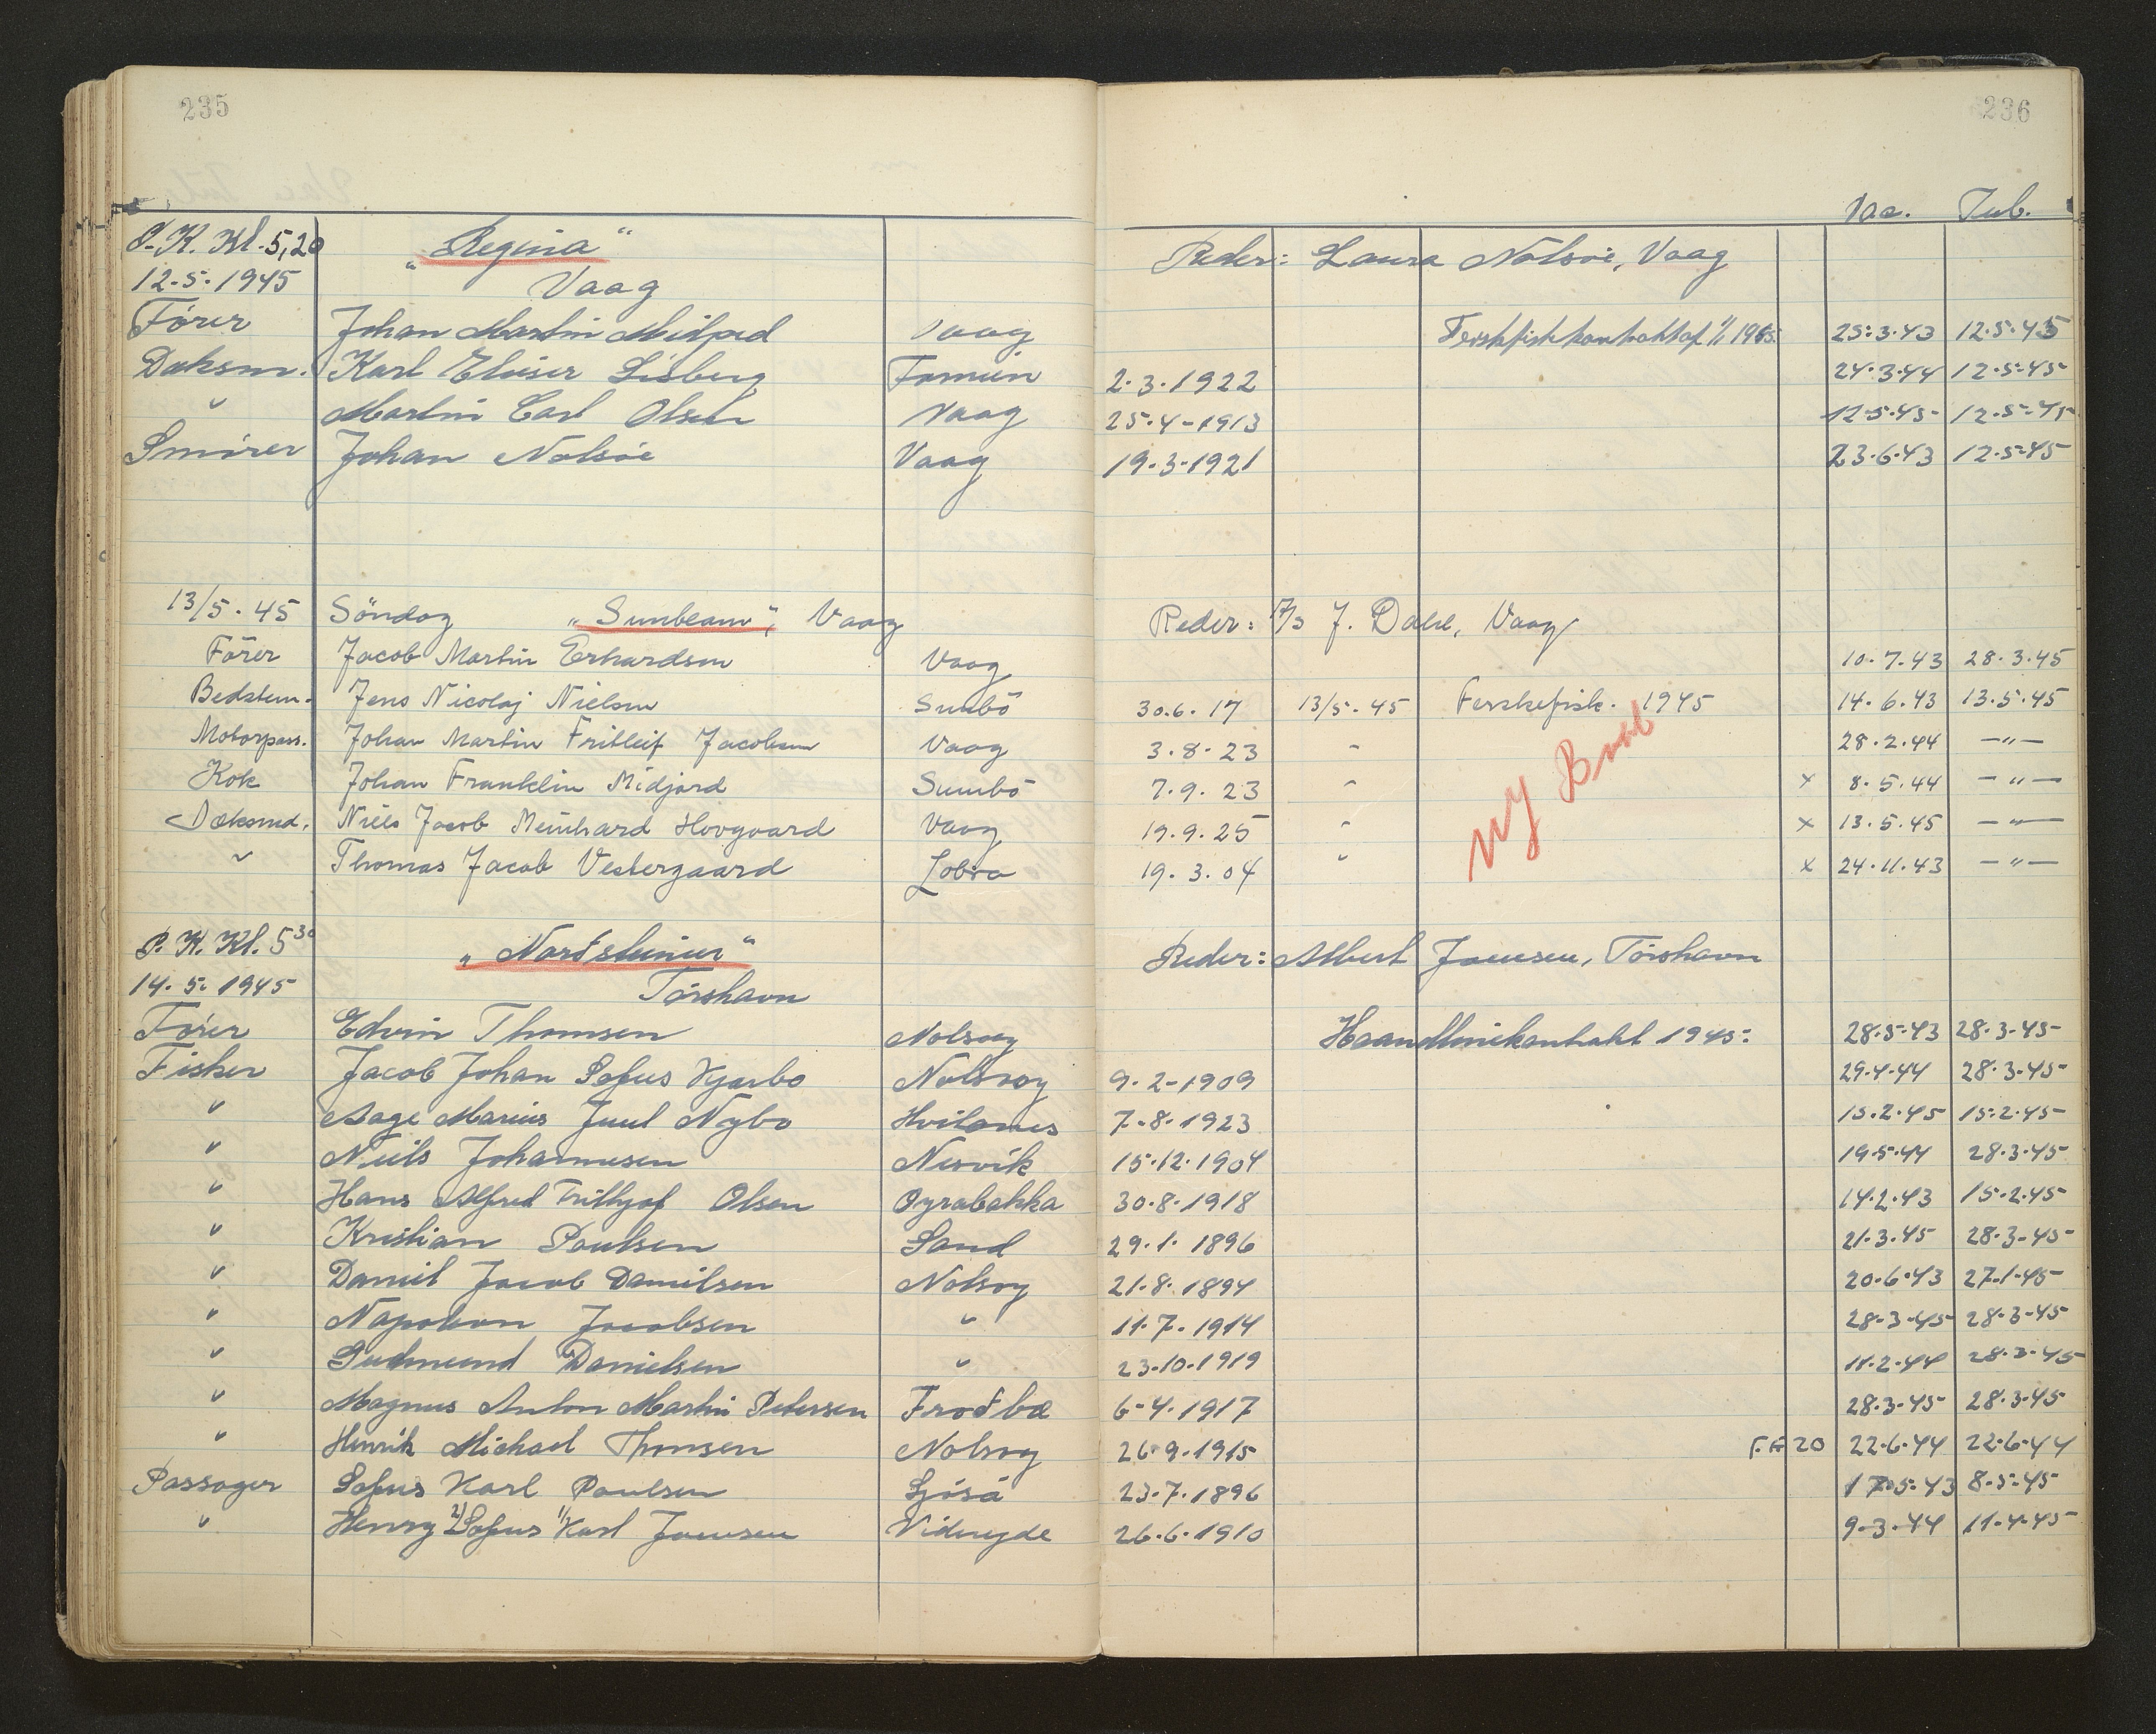 235
236
Vac. Tub.
P.K. Kl. 5,20 „Regina“ Reder: Laura Nolsøe, Vaag
12-5-1945 Vaag
Förer Johan Martin Vaag 1945 25.3.43 12.5.45
Daksm. Karl Elieser Lisberg Famien 2.3.1922 24.3.44 12.5.45
" Martin Carl Olsen Vaag 25.4-1913 12.5.45 12.5.45
Smörer Johan Nolsøe Vaag 19.3.1921 23.6.43 12.5.45
13/5.45 Söndag „Sunbeam“, Vaag Reder: A/s J. Dahl, Vaag
Förer Jacob Martin Erhardsen Vaag 10.7.43 28.3.45
Bedstem. Jens Nicolaj Nielsen Sumbö 30.6.17 13/5.45 Ferskefisk. 1945 14.6.43 13.5.45
Motorpass. Johan Martin Fritleif Jacobsen Vaag 3.8.23 " 28.2.44 —"—
Kok Johan Franklin Midjord Sumbö 7.9.23 " x 8.5.44 —"—
Dæksmd. Niels Jacob Meinhard Hovgaard Vaag 19.9.25 " x 13.5.45 —"—
" Thomas Jacob Vestergaard Lobra 19.3.04 " x 24.11.43 —"—
Ny
P.K. Kl. 5³⁰ „Nordsteinur“ Reder: Albert Joensen, Tórshavn
14.5.1945 Tórshavn
Förer Edvin Thomsen Nolsoy Haandlinekontrakt 1945: 28.5.43 28.3.45
Fisker Jacob Johan Sofus Kjærbo Nolsoy 9.2-1909 29.4.44 28.3.45
" Aage Marius Juul Nybo Hvitanes 7.8.1923 15.2.45 15.2.45
" Niels Johannesen Nesvik 15.12.1904 19.5.44 28.3.45
" Hans Alfred Frithjof Olsen Oyrabakka 30.8.1918 14.2.43 15.2.45
" Kristian Poulsen Sand 29.1.1896 21.3.45 28.3.45
" Daniel Jacob Danielsen Nolsoy 21.8.1894 20.6.43 27.1.45
" Napoleon Jacobsen " 11.7.1914 28.3.45 28.3.45
" Gudmund Danielsen " 23.10.1919 11.2.44 28.3.45
" Magnus Anton Martin Petersen Frodbø 6-4.1917 28.3.45 28.3.45
" Henrik Michael Thomsen Nolsoy 26.9.1915 F.F. 20 22.6.44 22.6.44
Passager Sofus Karl Poulsen Ljósá 23.7.1896 17.5.43 8.5.45
" Henry 2) Sofus 1) Karl Joensen Videreyde 26.6.1910 9.3.44 11.4.45